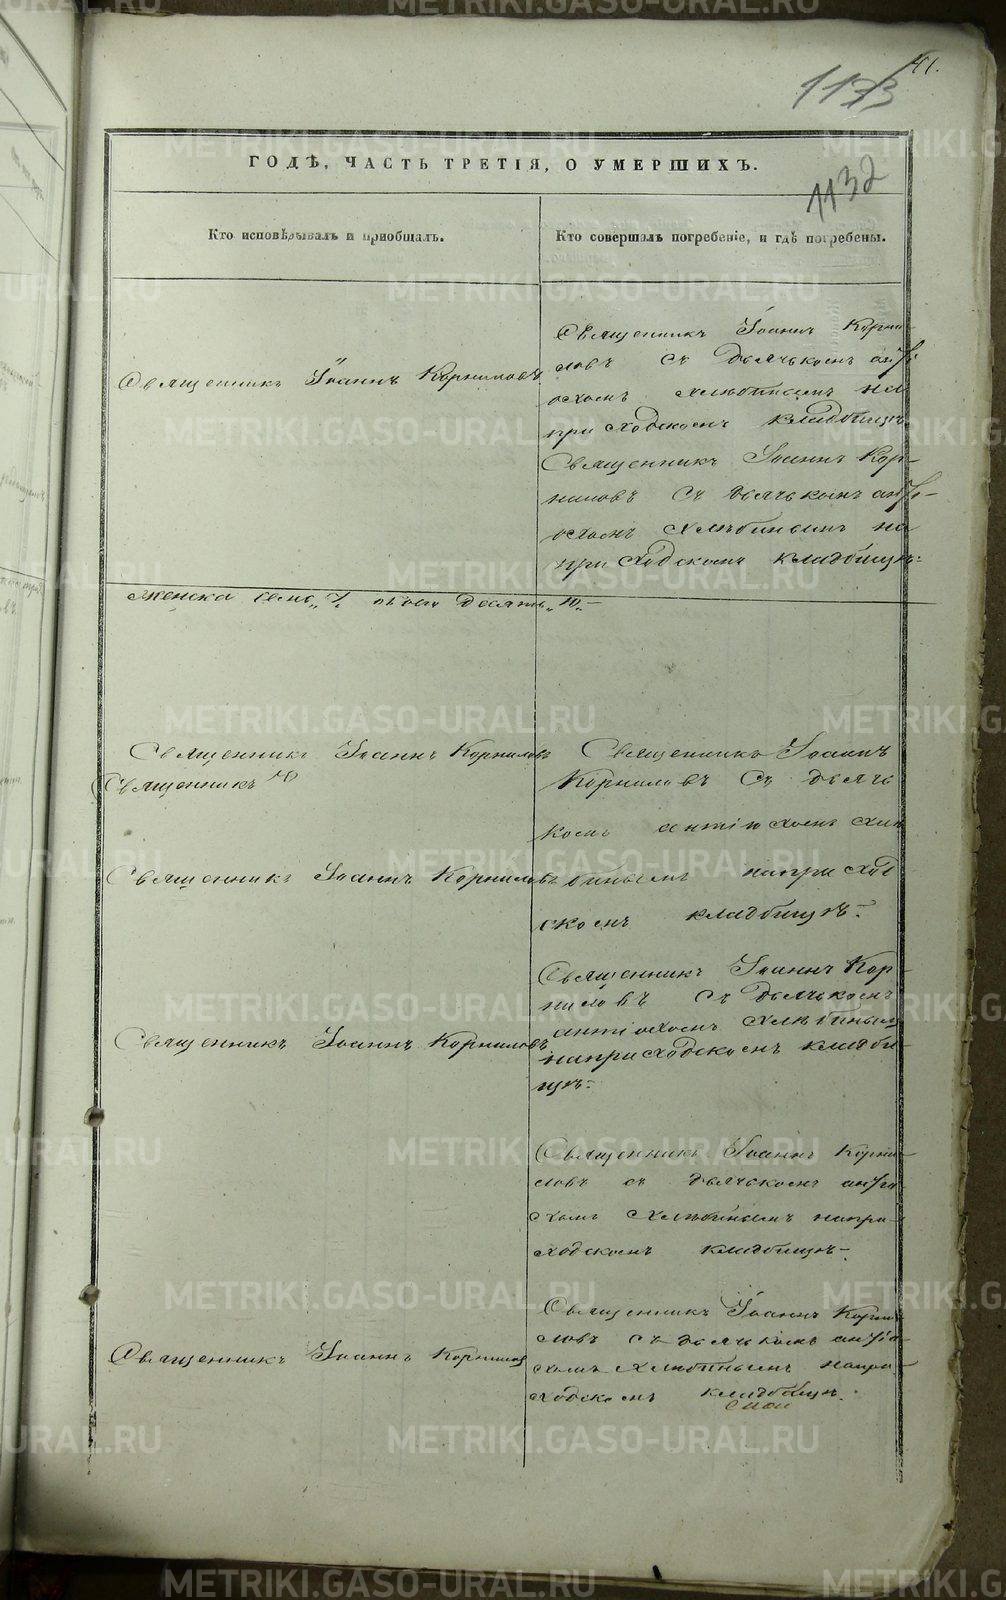 41.
1173
1132
ГОДѢ, ЧАСТЬ ТРЕТІЯ, О УМЕРШИХЪ.
Кто исповѣдывалъ и приобщалъ.
Кто совершалъ погребеніе, и гдѣ погребены.
Священникъ Іоаннъ Корниловъ
Священникъ Іоаннъ Корни-
ловъ съ дьячькомъ анѳі
охомъ Хлѣбинымъ на
приходскомъ кладбищѣ
Священникъ Іоаннъ Кор-
ниловъ Съ дьячькомъ анѳі-
охомъ Хлѣбинымъ на
приходскомъ кладбищѣ:
женска семь „7„ обоего десять „10„
Священникъ Іоаннъ Корниловъ
Священникъ
Священникъ Іоаннъ Корниловъ
Священникъ Іоаннъ
Корниловъ Съ дьячь
комъ антіохомъ Хлѣ
бинымъ наприход
скомъ кладбищѣ:
Священникъ Іоаннъ Корниловъ
Священникъ Іоаннъ Кор-
ниловъ Съ дьячькомъ
антіохомъ Хлѣбинымъ
наприходскомъ кладби-
щѣ:
Священникъ Іоаннъ Корни-
ловъ съ дьячькомъ анѳіо
хомъ Хлѣбинымъ напри-
ходскомъ кладбищѣ
Священникъ Іоаннъ Корнилов
Священникъ Іоаннъ Корни
ловъ съ дьячькомъ анѳіо-
хомъ Хлѣбинымъ напри-
ходскомъ кладбищѣ.
METRIKI.GASO-URAL.RU